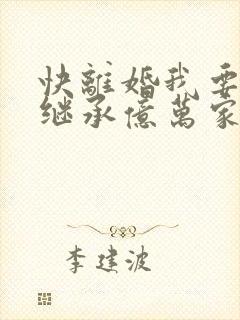 快離婚我要
继承億萬家
李建波